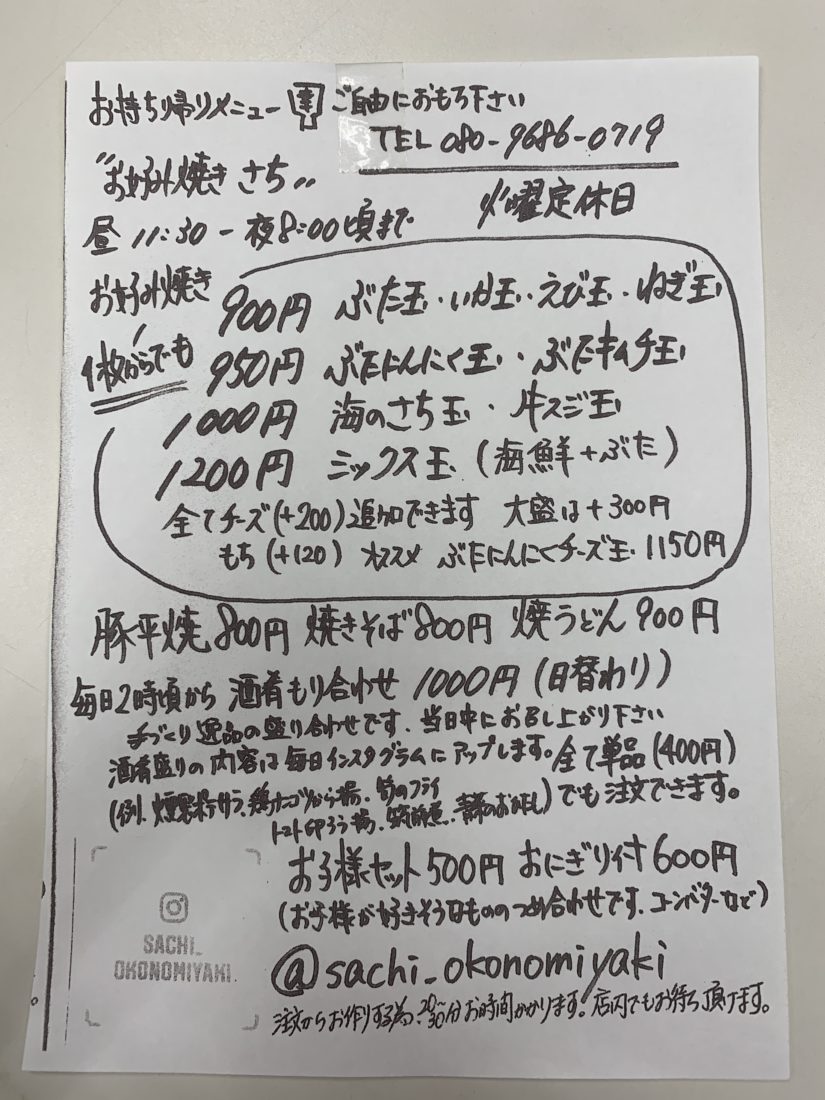 お持ち帰りメニュー ご自由におもち下さい
TEL 080-9686-0719
"お好み焼き さち"
火曜定休日
昼 11:30 - 夜8:00頃まで
お好み焼き
1枚からでも
900円 ぶた玉・いか玉・えび玉・ねぎ玉
950円 ぶたにんにく玉・ぶたキムチ玉
1000円 海のさち玉・牛スジ玉
1200円 ミックス玉 (海鮮+ぶた)
全てチーズ(+200)追加できます 大盛は+300円
もち(+120) オススメ ぶたにんにくチーズ玉 1150円
豚平焼800円 焼きそば800円 焼うどん900円
毎日2時頃から 酒肴もり合わせ 1000円 (日替わり)
手づくり逸品の盛り合わせです、当日中にお召し上がり下さい
酒肴盛りの内容は毎日インスタグラムにアップします。全て単品(400円)
(例、ポテサラ、鶏ナンコツから揚、筍のフライ
でも注文できます。
お子様セット500円 おにぎり付600円
(お子様が好きそうなもののつめ合わせです、コーンバターなど)
SACHI_
OKONOMIYAKI
@sachi_okonomiyaki
注文からお作りする為、20〜30分お時間かかります。店内でもお待ち頂けます。